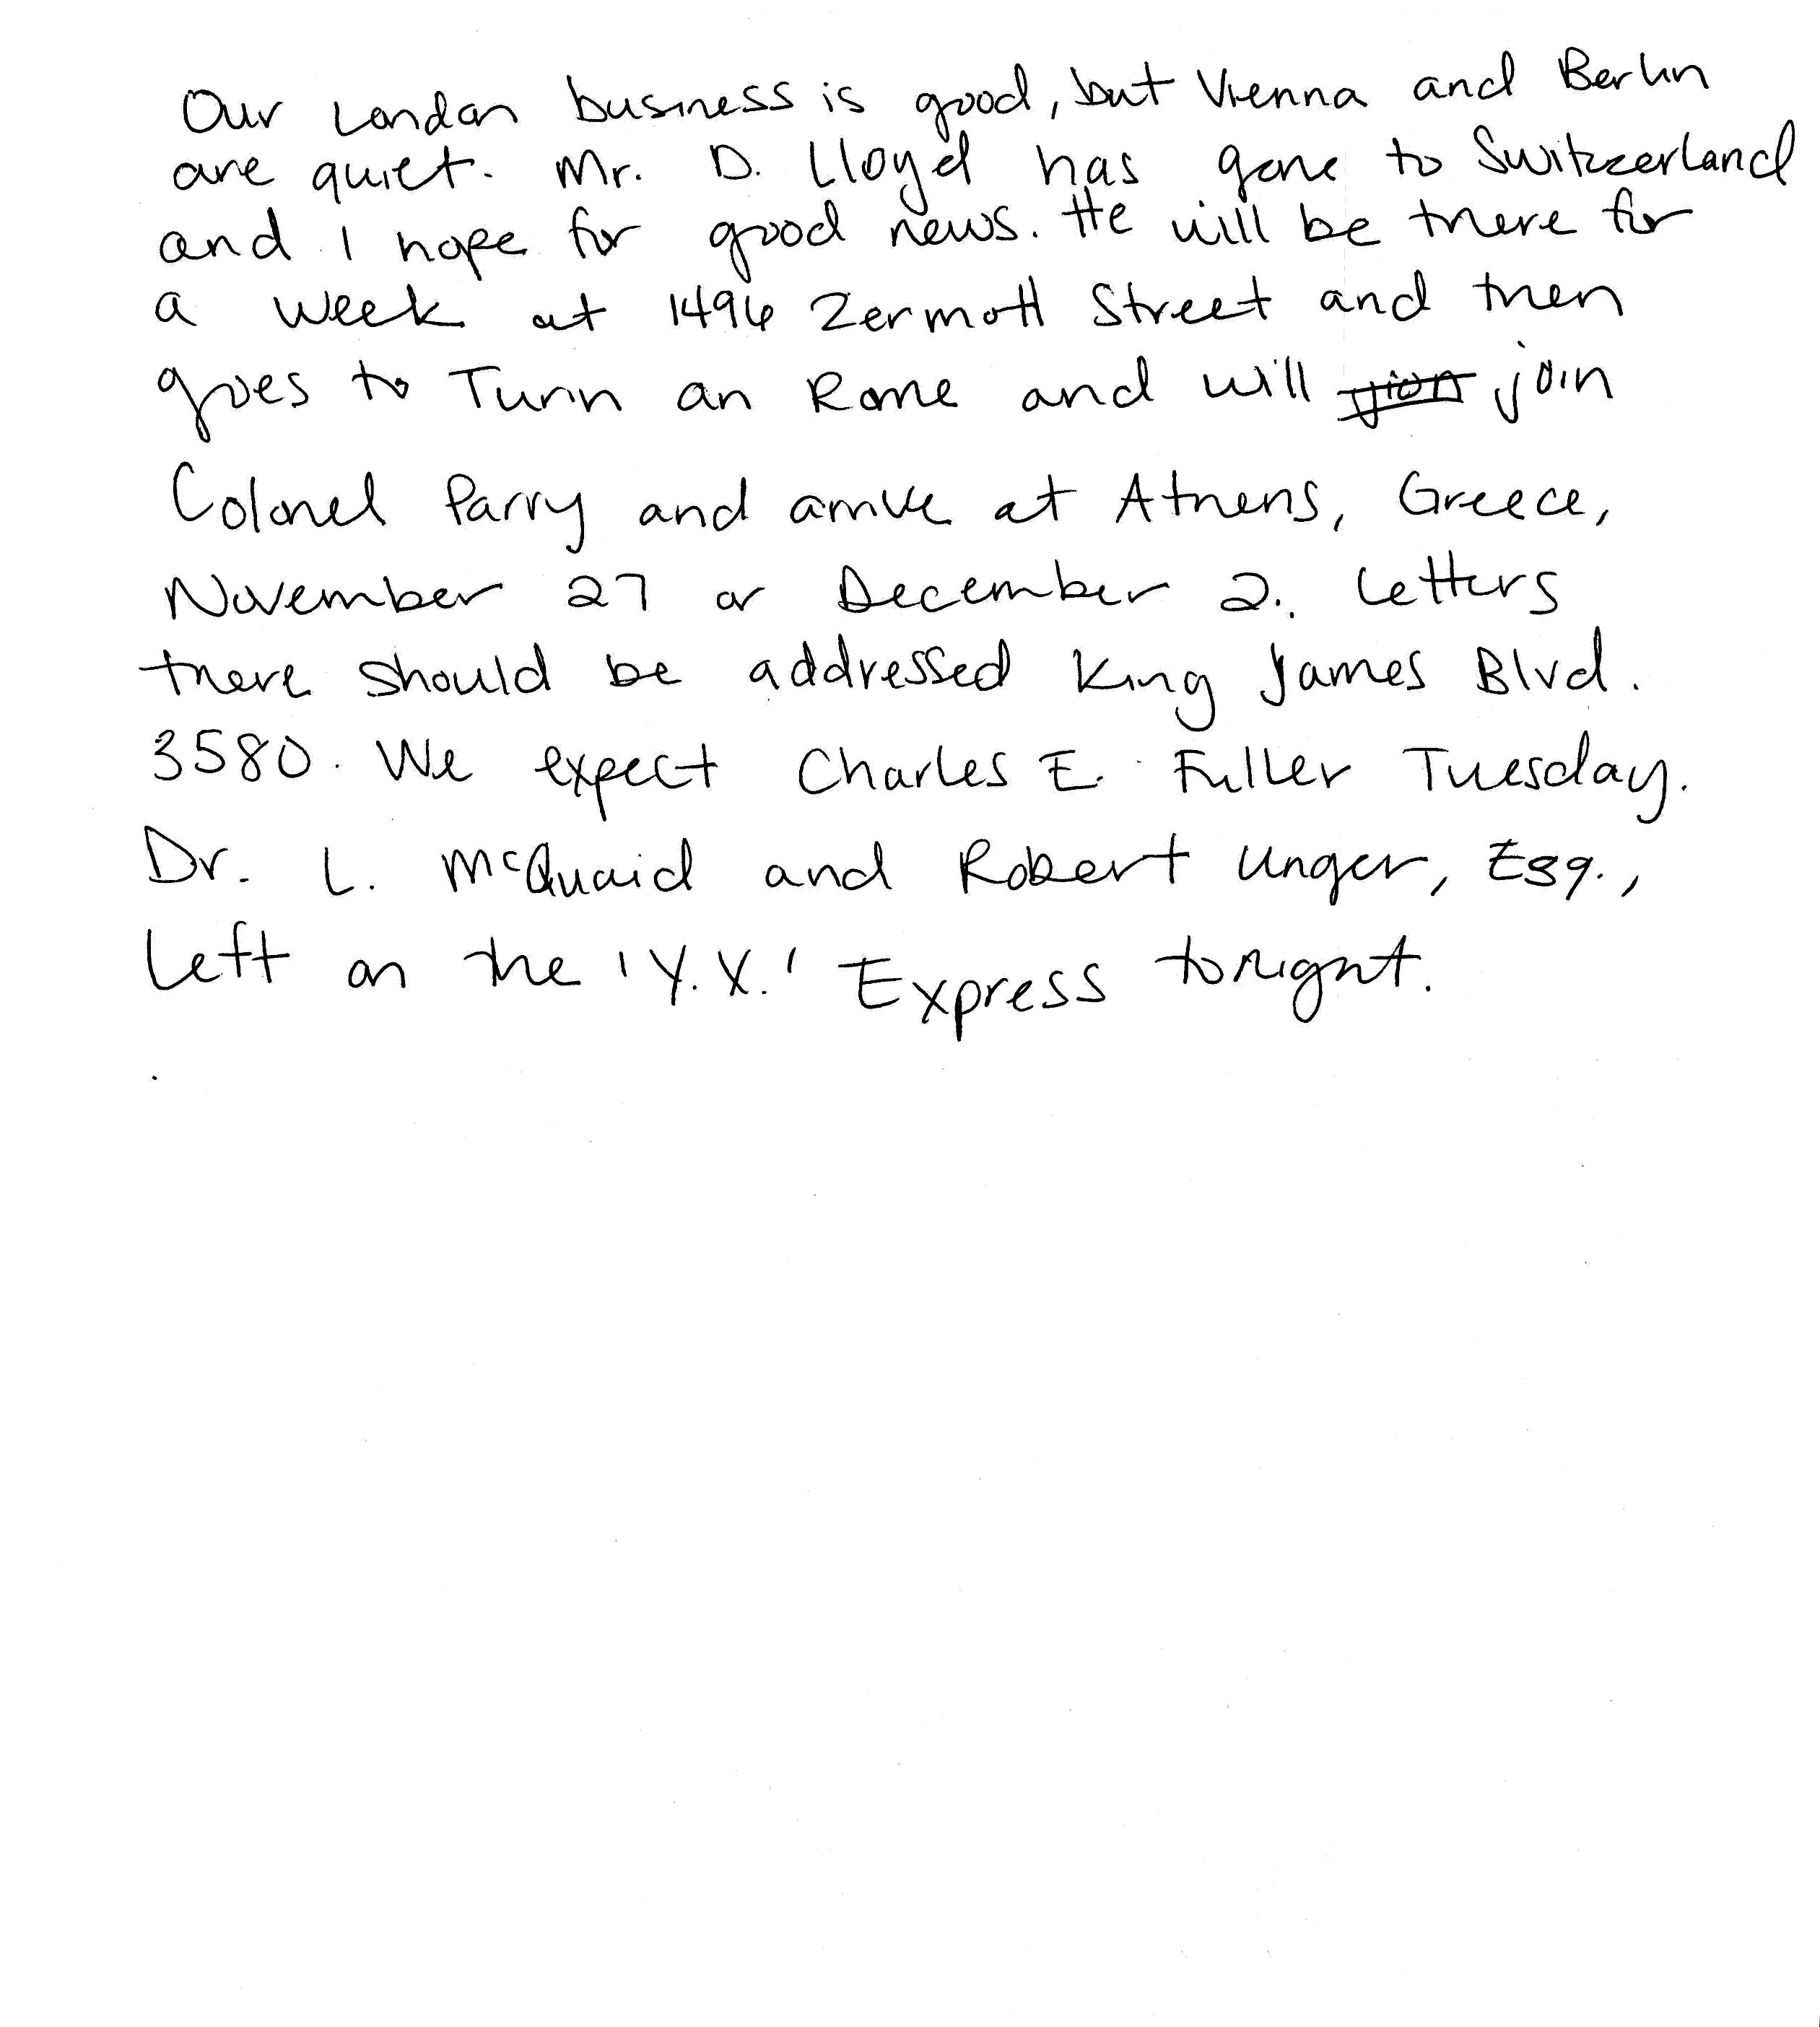 Our London business is good, but Vienna and Berlin
are quiet. Mr. D. Lloyd has gone to Switzerland
and I hope for good news. He will be there for
a week at 1496 Zermott Street and then
goes to Turin an Rome and will jion join
Colonel Parry and arrive at Athens, Greece,
November 27 or December 2. Letters
there should be addressed King James Blvd.
3580. We expect Charles E. Fuller Tuesday.
Dr. L. McQuaid and Robert Unger, Esq.,
left on the 'Y.X.' Express tonight.